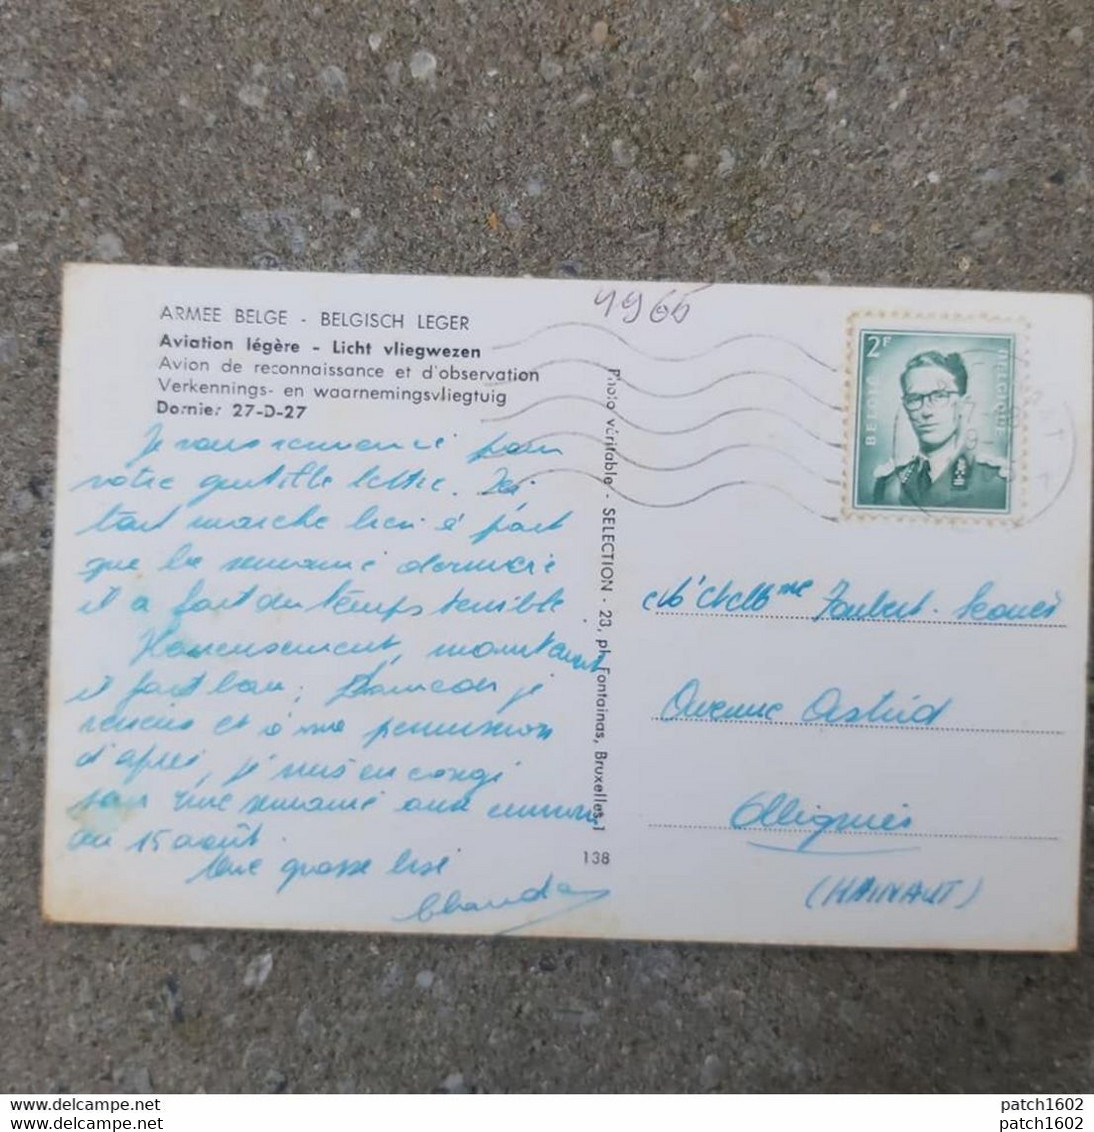 1966
ARMEE BELGE - BELGISCH LEGER
Aviation légère - Licht vliegwezen
Avion de reconnaissance et d'observation
Verkennings- en waarnemingsvliegtuig
Dornier 27-D-27
Je vous remercie pour
votre gentille lettre. Ici,
tout marche bien à part
que la semaine dernière
il a fait du temps terrible
Heureusement, maintenant
il fait bon;
et à ma permission
d'après, je suis en congé
pour une semaine aux environs
du 15 août.
Une grosse bise
Photo véritable - SELECTION - 23, pl. Fontainas, Bruxelles 1
138
2F
BELGIË BELGIQUE
Joubert
Avenue Astrid
Ollignies
(HAINAUT)
www.delcampe.net
www.delcampe.net
patch1602
patch1602